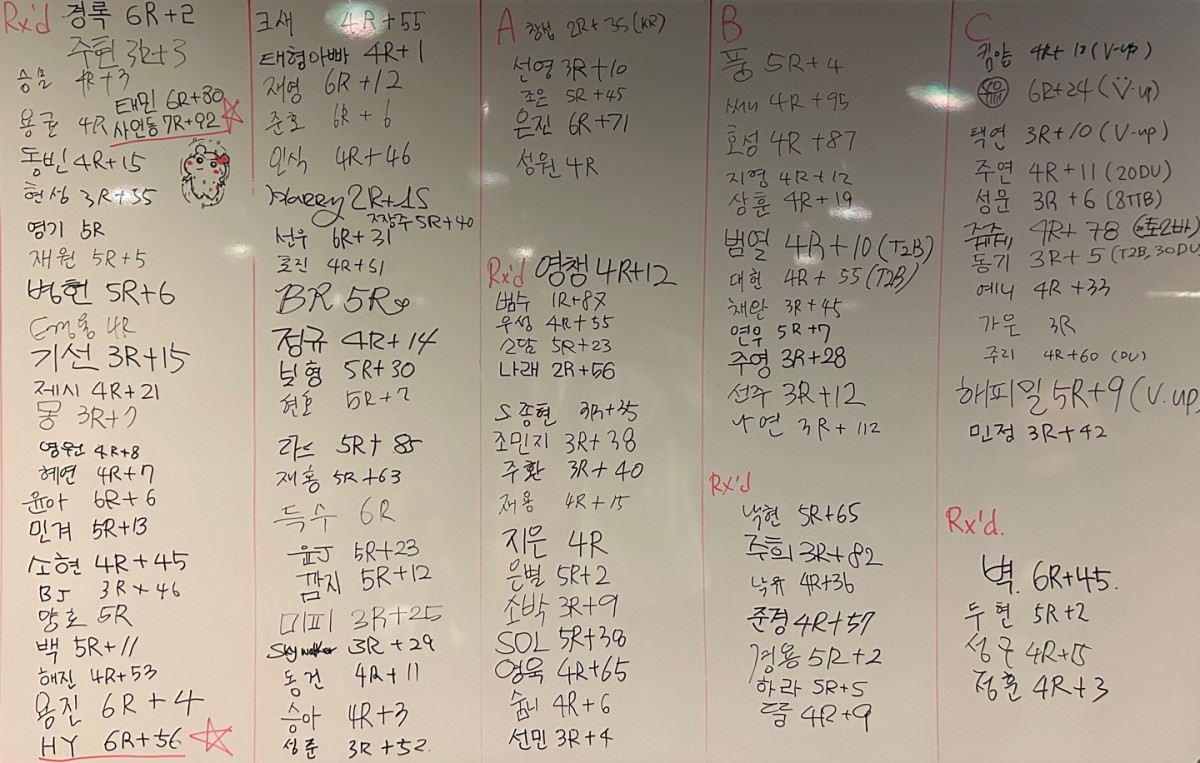 Rx'd 경록 6R+2
주현 3R+3
승모 4R+3
태민 6R+30
용균 4R 사언등 7R+92
동빈 4R+15
현성 3R+55
영기 5R
재원 5R+5
병현 5R+6
4R
기선 3R+15
제시 4R+21
몽 3R+7
영원 4R+8
혜연 4R+7
윤아 6R+6
민겨 5R+13
소현 4R+45
BJ 3R+46
망호 5R
백 5R+11
해진 4R+53
용진 6R+4
HY 6R+56
크새 4R+55
태형아빠 4R+1
재영 6R+12
준호 6R+6
인식 4R+46
Harry 2R+15
짱주 5R+40
선우 6R+31
로진 4R+51
BR 5R
정규 4R+14
보형 5R+30
현호 5R+7
라스 5R+85
재홍 5R+63
득수 6R
윤J 5R+23
깜지 5R+12
미피 3R+25
Sky walker 3R+29
동건 4R+11
승아 4R+3
성준 3R+52.
A 창섭 2R+35 (KR)
선영 3R+10
조은 5R+45
은진 6R+71
성원 4R
Rx'd 영챙 4R+12
범수 1R+87
우성 4R+55
소담 5R+23
나래 2R+56
S종현 3R+35
조민지 3R+38
주환 3R+40
재용 4R+15
지은 4R
은별 5R+2
소박 3R+9
SOL 5R+38
영욱 4R+65
숨니 4R+6
선민 3R+4
B
풍 5R+4
써니 4R+95
효성 4R+87
지영 4R+12
상훈 4R+19
범열 4R+10 (T2B)
대현 4R+55 (T2B)
채완 3R+45
연우 5R+7
주영 3R+28
선주 3R+12
나연 3R+112
Rx'd
낙현 5R+65
주희 3R+82
낙유 4R+36
준경 4R+57
경용 5R+2
하라 5R+5
드름 4R+9
C
킴양 4R+10 (V-up)
6R+24 (V-up)
택연 3R+10 (V-up)
주연 4R+11 (20DU)
성문 3R+6 (8TTB)
4R+78
동기 3R+5 (T2B, 30DU)
예니 4R+33
가은 3R
주리 4R+60 (DU)
해피밀 5R+9 (V.up
민정 3R+42
Rx'd.
벽. 6R+45.
두현 5R+2
성구 4R+15
정훈 4R+3